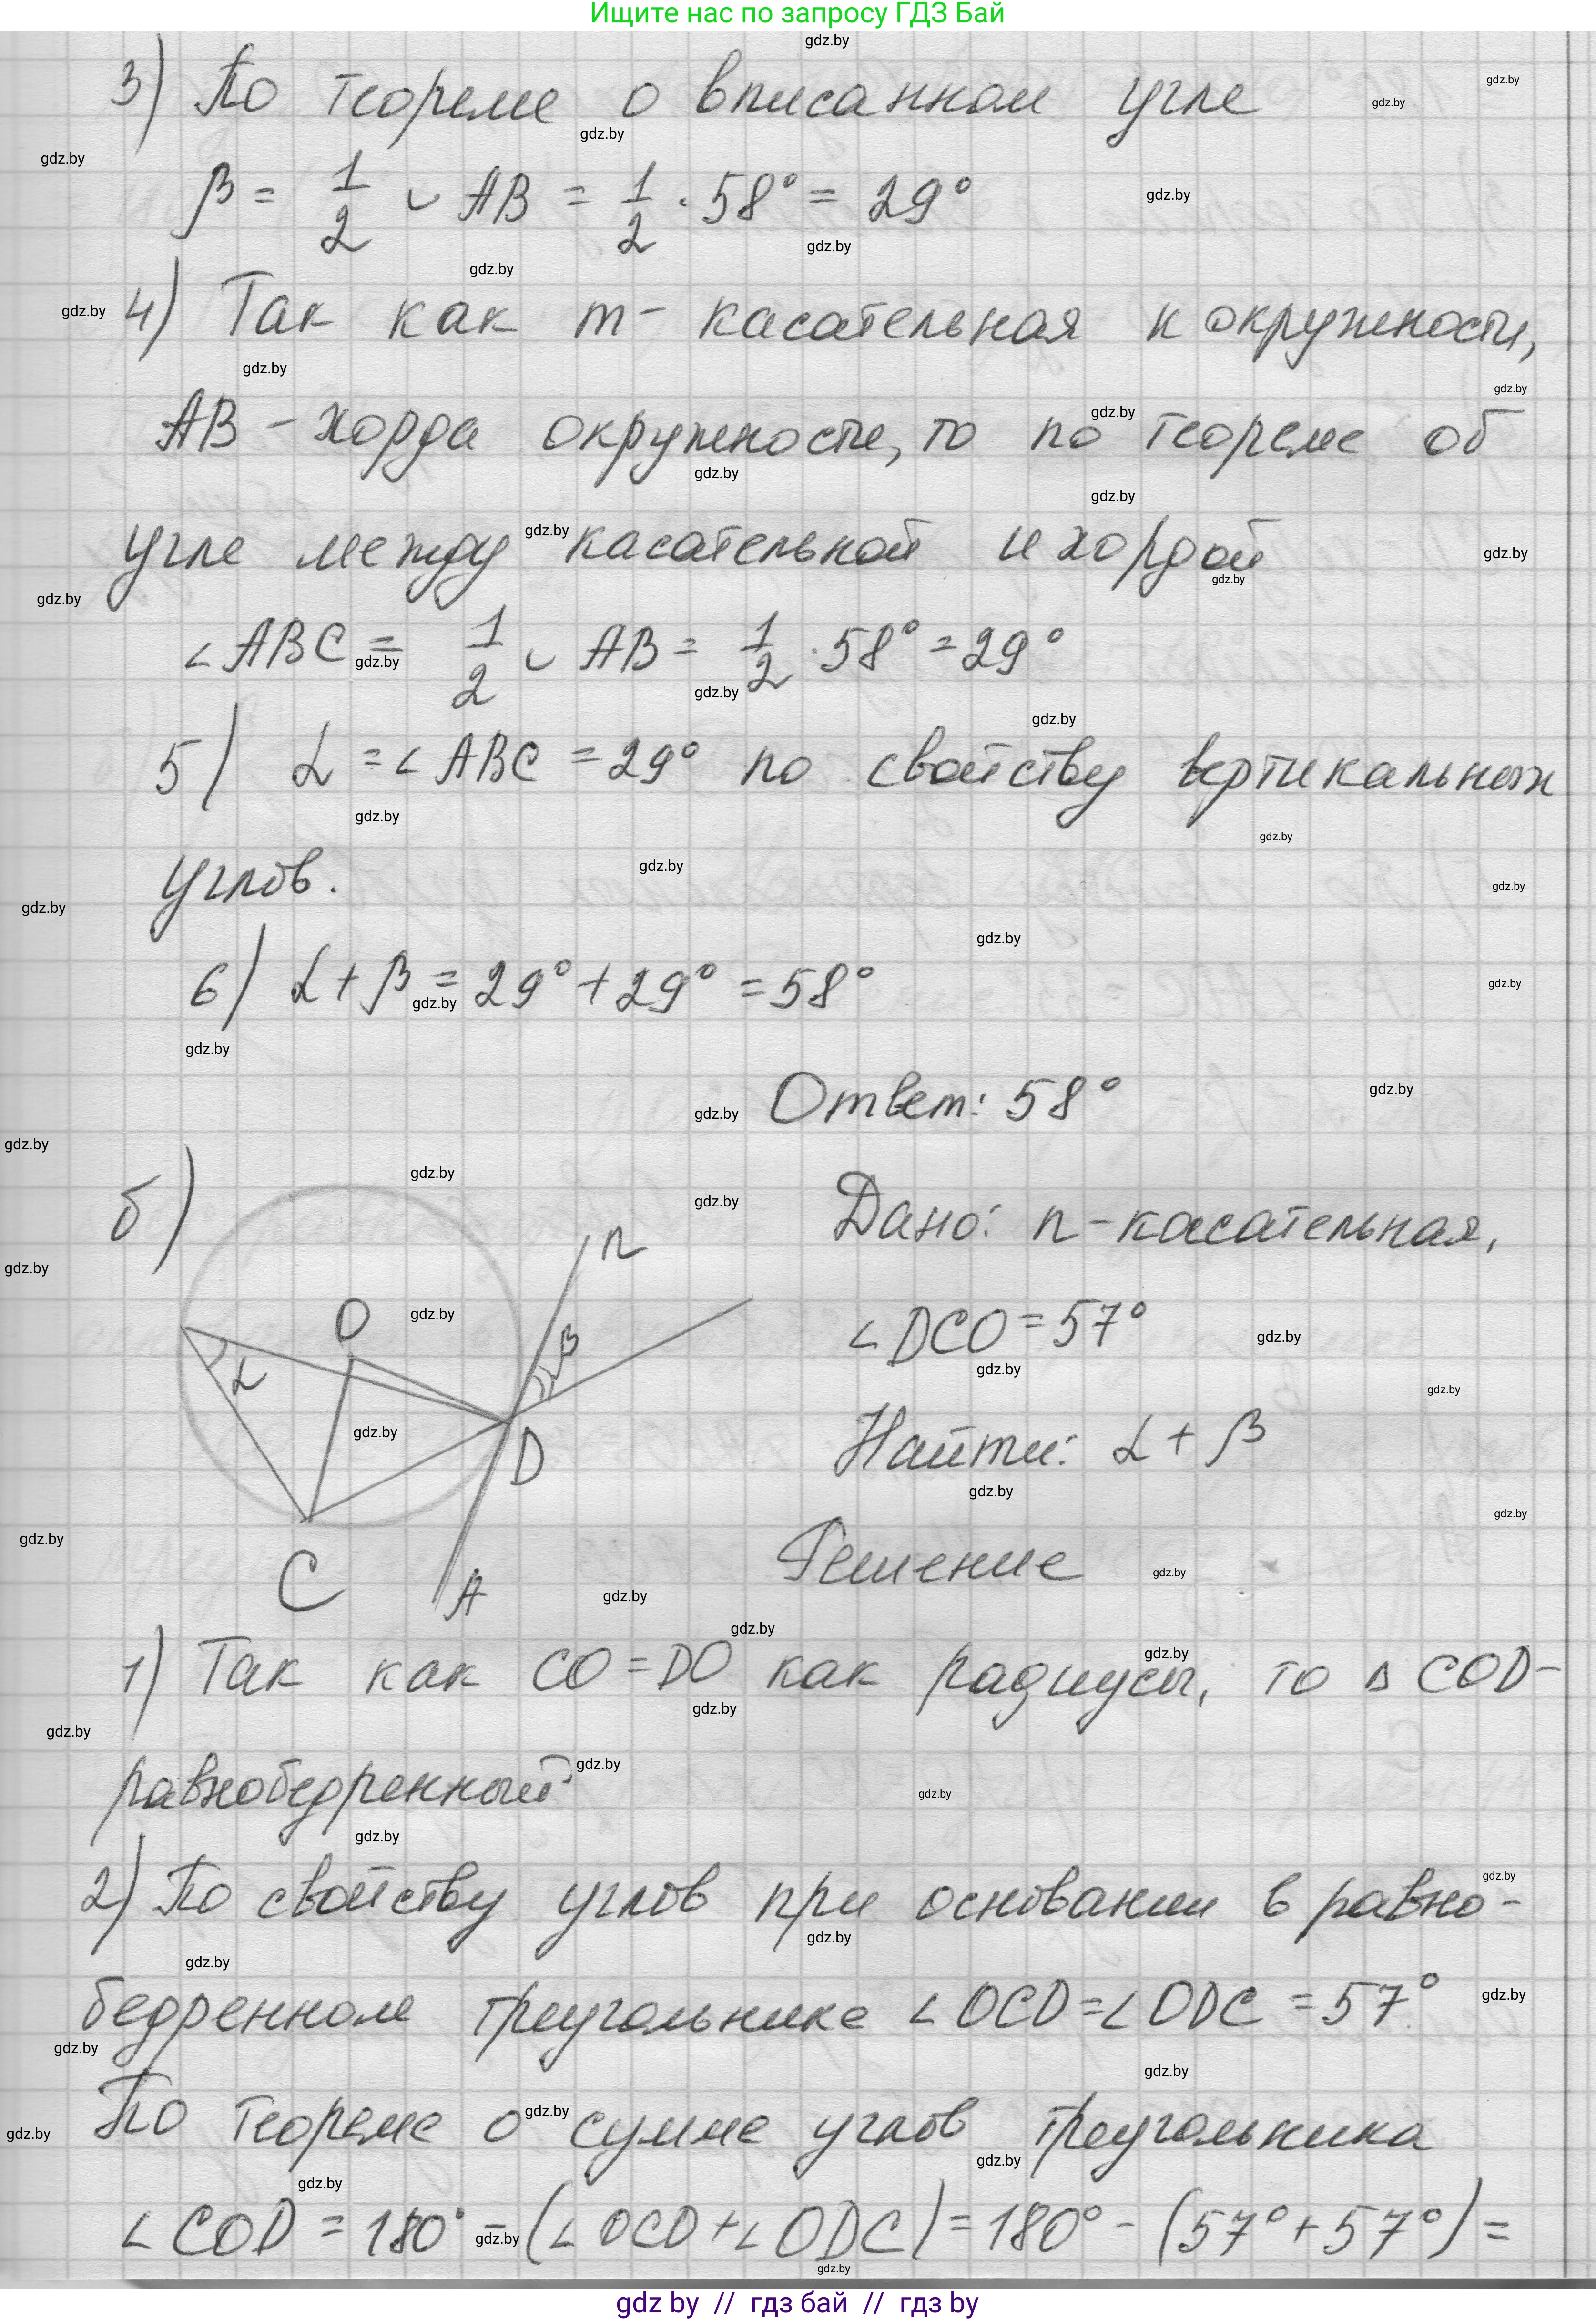 Ищите нас по запросу ГДЗ Бай
3) По теореме о вписанном угле
β = 1/2 ◡ AB = 1/2 · 58° = 29°
4) Так как m - касательная к окружности,
AB - хорда окружности, то по теореме об
угле между касательной и хордой
∠ABC = 1/2 ◡ AB = 1/2 · 58° = 29°
5) α = ∠ABC = 29° по свойству вертикальных
углов.
6) α + β = 29° + 29° = 58°
Ответ: 58°
б)
n
O
β
α
D
C
A
Дано: n - касательная,
∠DCO = 57°
Найти: α + β
Решение
1) Так как CO = DO как радиусы, то ΔCOD -
равнобедренный
2) По свойству углов при основании в равно-
бедренном треугольнике ∠OCD = ∠ODC = 57°.
По теореме о сумме углов треугольника
∠COD = 180° - (∠OCD + ∠ODC) = 180° - (57° + 57°) =
gdz.by
gdz by // гдз бай // гдз by